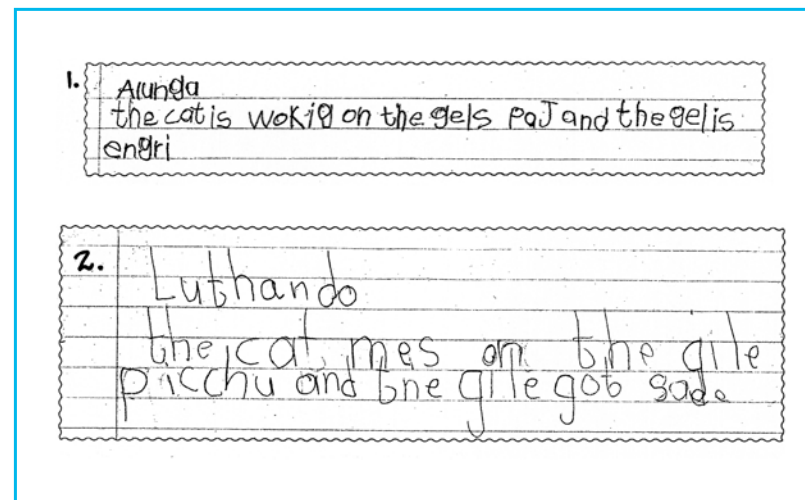 1.
Alunga
the cat is wokig on the gels paJ and the gel is
engri
2.
Luthando
the cat mes on the gile
picchu and the gile got sad.